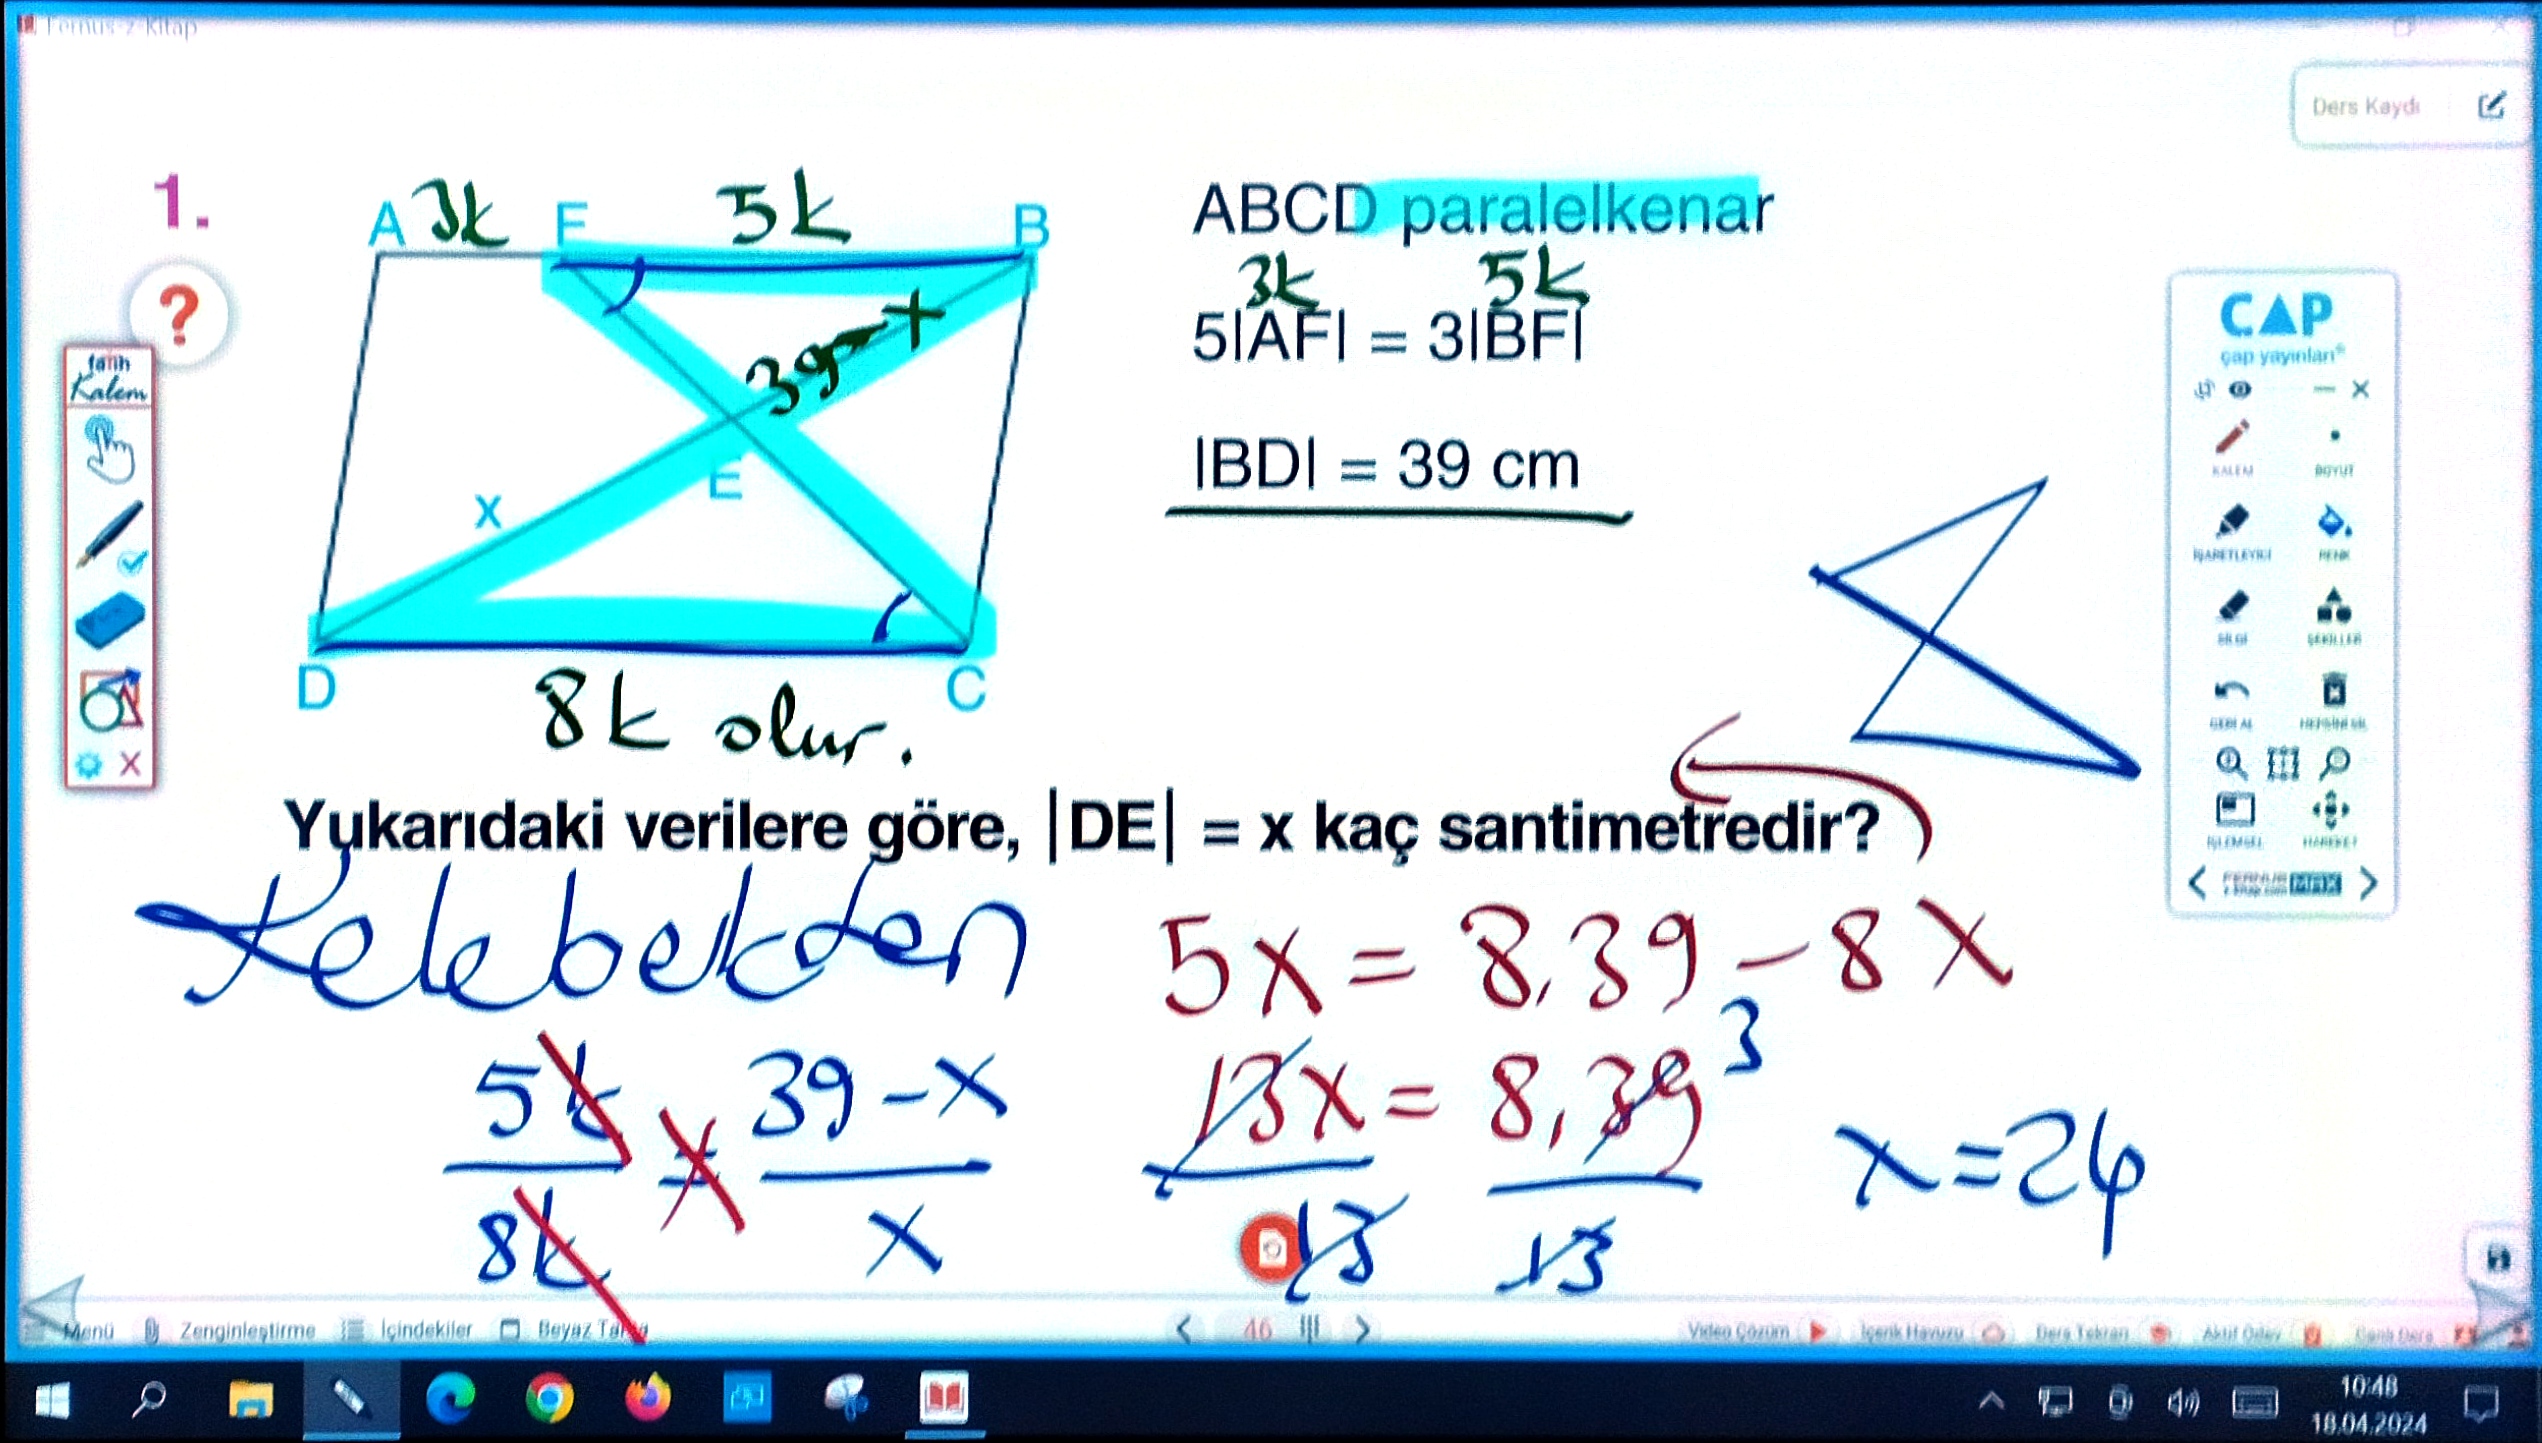 Fernus-z-Kitap
Ders Kaydı
1.
A 3k F 5k B
ABCD paralelkenar
3k 5k
5|AF| = 3|BF|
39-x
|BD| = 39 cm
x
E
D C
8k olur.
?
fatih
Kalem
CAP
çap yayınları
KALEM BOYUT
İŞARETLEYİCİ RENK
SİLGİ ŞEKİLLER
GERİ AL HEPSİNİ SİL
İŞLEMSEL HAREKET
Yukarıdaki verilere göre, |DE| = x kaç santimetredir?
Kelebekden
5x = 8.39 - 8x
5k = 39-x
8k x
13x = 8.39 3
13 13
x = 24
Menü Zenginleştirme İçindekiler Beyaz Tahta 46 Video Çözüm İçerik Havuzu Ders Tekrarı Aktif Ödev Canlı Ders
10:48
18.04.2024